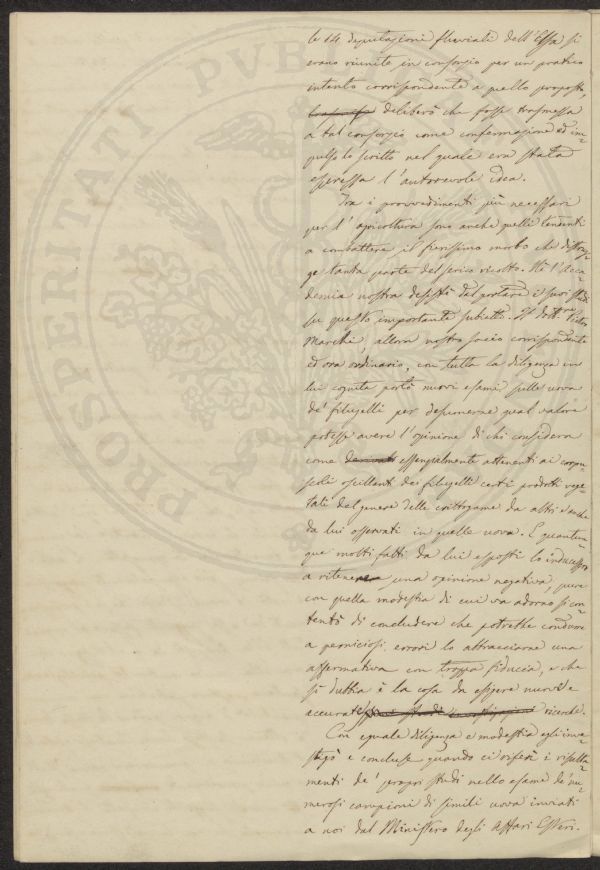 le 14 deputazioni fluviali dell'Elsa si
erano riunite in consorzio per un pratico
intento corrispondente a quello proposto,
deliberò che fosse trasmessa
a tal consorzio come confermazione ed im=
pulso lo scritto nel quale era stata
espressa l'autorevole idea.
Tra i provvedimenti più necessari
per l'agricoltura sono anche quelli tendenti
a combattere il fierissimo morbo che distrug=
ge tanta parte del serico ricolto. Nè l'Acca=
demia nostra desistè dal portare i suoi studi
su questo importante subietto. Il Dott.re Pietro
Marchi, allora nostro socio corrispondente
ed ora ordinario, con tutta la diligenza in
lui cognita portò nuovi esami sulle uova
de' filugelli per desumerne qual valore
potesse avere l'opinione di chi considera
come essenzialmente attenenti ai corpu=
scoli oscillanti dei filugelli certi prodotti vege=
tali del genere delle crittogame da altri e anche
da lui osservati in quelle uova. E quantun=
que molti fatti da lui esposti lo inducessero
a ritenere una opinione negativa, pure
con quella modestia di cui va adorno si con=
tentò di concludere che potrebbe condurre
a perniciosi errori lo abbracciarne una
affermativa con troppa fiducia, e che
sì dubbia è la cosa da esigere nuove e
accurate ricerche.
Con eguale diligenza e modestia egli inve=
stigò e concluse quando ci riferì i resulta=
menti de' propri studi nello esame de' nu=
merosi campioni di simili uova inviati
a noi dal Ministero degli Affari Esteri.
PROSPERITATI PVBLICAE